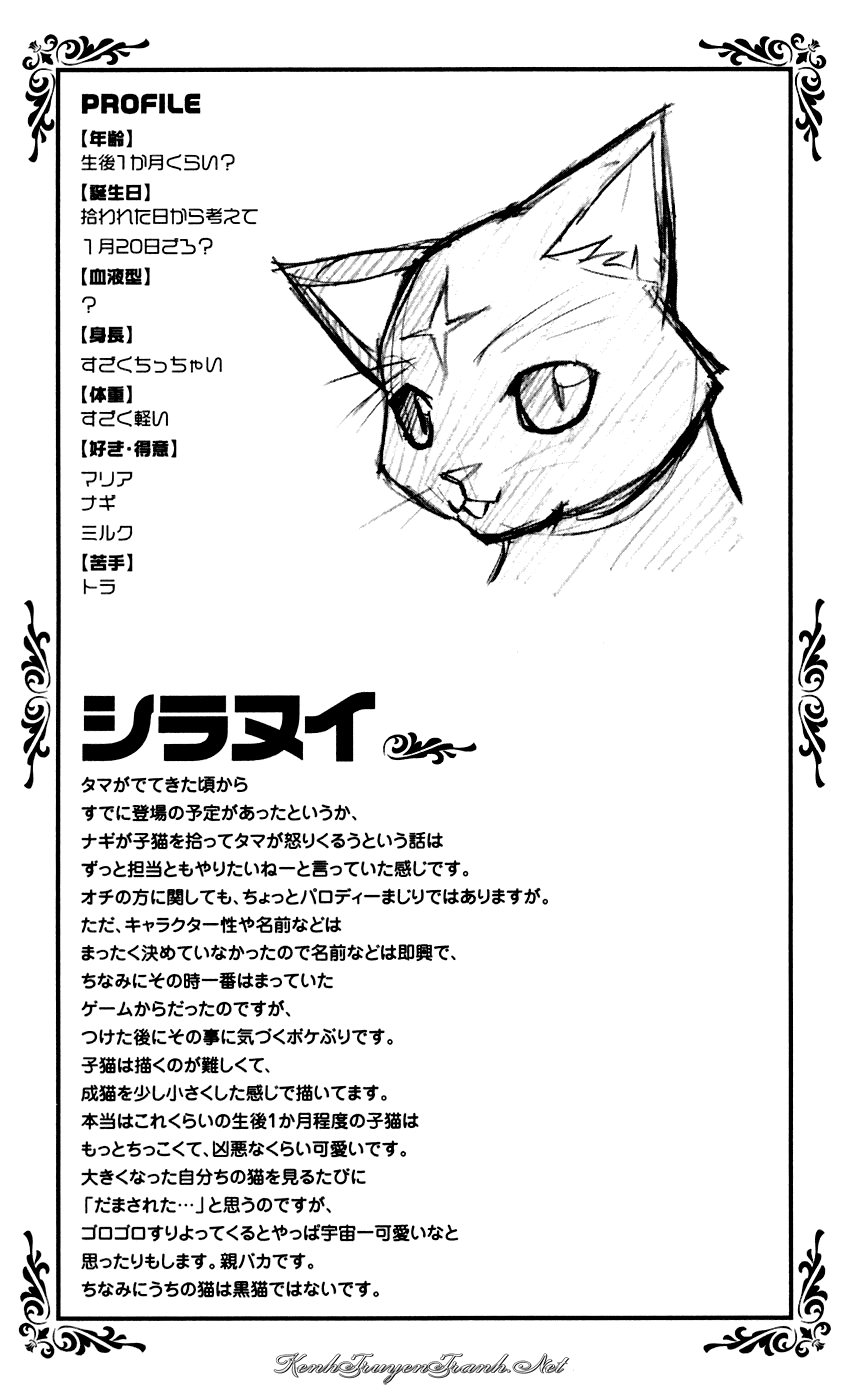 PROFILE
【年齢】
生後1か月くらい?
【誕生日】
拾われた日から考えて
1月20日ごろ?
【血液型】
?
【身長】
すごくちっちゃい
【体重】
すごく軽い
【好き・得意】
マリア
ナギ
ミルク
【苦手】
トラ
シラヌイ
タマがでてきた頃から
すでに登場の予定があったというか、
ナギが子猫を拾ってタマが怒りくるうという話は
ずっと担当ともやりたいねーと言っていた感じです。
オチの方に関しても、ちょっとパロディーまじりではありますが。
ただ、キャラクター性や名前などは
まったく決めていなかったので名前などは即興で、
ちなみにその時一番はまっていた
ゲームからだったのですが、
つけた後にその事に気づくボケぶりです。
子猫は描くのが難しくて、
成猫を少し小さくした感じで描いてます。
本当はこれくらいの生後1か月程度の子猫は
もっとちっこくて、凶悪なくらい可愛いです。
大きくなった自分ちの猫を見るたびに
「だまされた…」と思うのですが、
ゴロゴロすりよってくるとやっぱ宇宙一可愛いなと
思ったりもします。親バカです。
ちなみにうちの猫は黒猫ではないです。
KenhTruyenTranh.Net